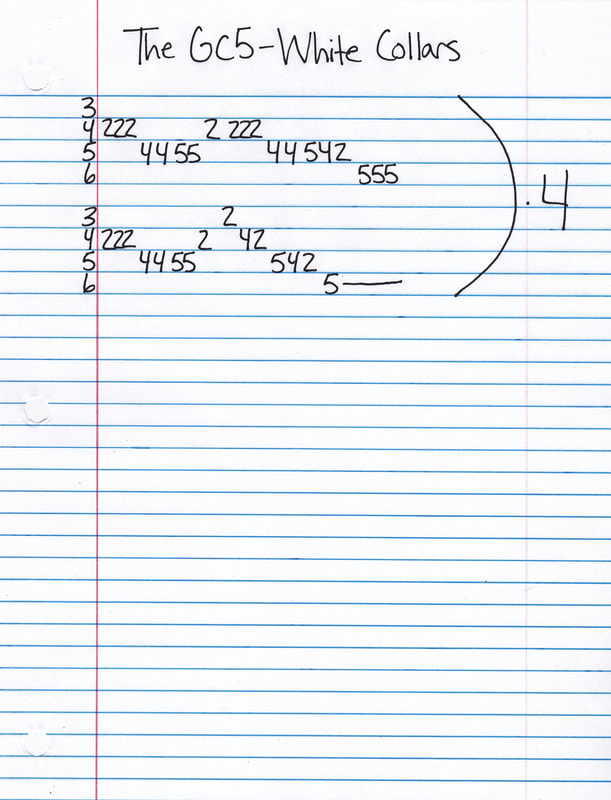 The GC5-White Collars
3
4 222 2 222
5 4455 44 542
6 555
3 2
4 222 2 42
5 4455 542
6 5—
) · 4